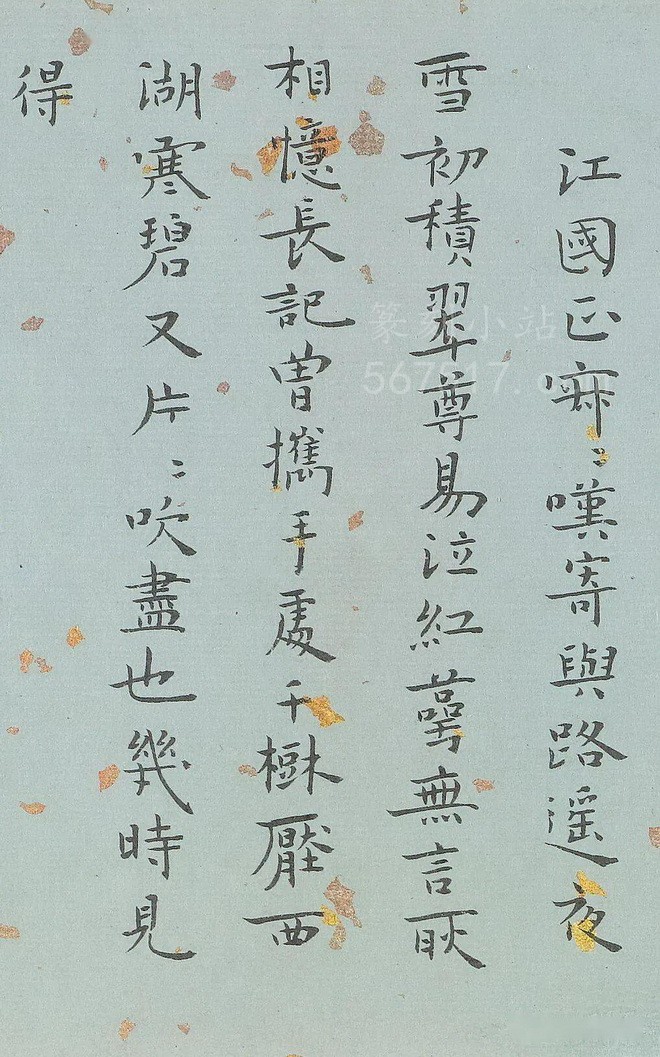 江國正寂〻嘆寄與路遥夜
雪初積翠尊易泣紅萼無言耿
相憶長記曾攜手處千樹壓西
湖寒碧又片〻吹盡也幾時見
得
篆刻小站